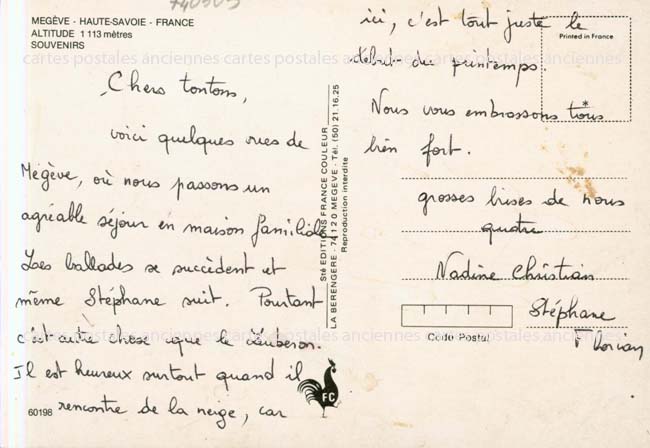 740305
MEGÈVE - HAUTE-SAVOIE - FRANCE
ALTITUDE 1 113 mètres
SOUVENIRS
cartes postales anciennes cartes postales anciennes cartes postales anciennes
Chers tontons,
voici quelques vues de
Mégève, où nous passons un
agréable séjour en maison familiale
Les ballades se succèdent et
même Stéphane suit. Pourtant
c'est autre chose que le Luberon.
Il est heureux surtout quand il
rencontre de la neige, car
60198
Sté EDITIONS FRANCE COULEUR
LA BERENGERE - 74120 MEGEVE - Tél. (50) 21.16.25
Reproduction interdite
FC
ici, c'est tout juste le
début du printemps.
Printed in France
Nous vous embrassons tous*
bien fort.
grosses bises de nous
quatre
Nadine Christian
Stéphane
Florian
Code Postal
cartes postales anciennes cartes postales anciennes cartes postales anciennes